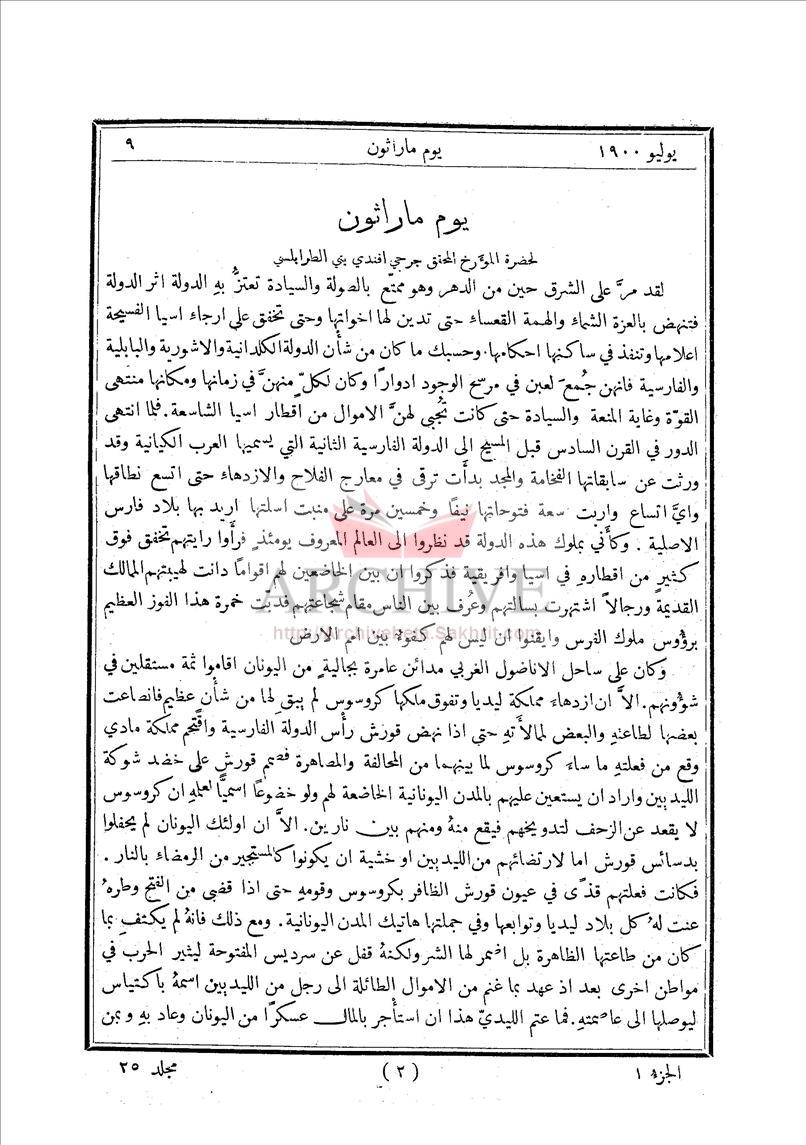 يوليو ١٩٠٠ يوم ماراثون ٩
يوم ماراثون
لحضرة المؤرخ المحقق جرجي افندي يني الطرابلسي
لقد مرَّ على الشرق حين من الدهر وهو ممتّع بالصولة والسيادة تعتزُّ بهِ الدولة اثر الدولة
فتنهض بالعزة الشماء والهمة القعساء حتى تدين لها اخواتها وحتى تخفق على ارجاء اسيا الفسيحة
اعلامها وتنفذ في ساكنها احكامها. وحسبك ما كان من شأن الدولة الكلدانية والاشورية والبابلية
والفارسية فانهن جُمعَ لعبن في مرسح الوجود ادوارًا وكان لكلّ منهنَّ في زمانها ومكانها منتهى
القوّة وغاية المنعة والسيادة حتى كانت تُجبى لهنَّ الاموال من اقطار اسيا الشاسعة. فلما انتهى
الدور في القرن السادس قبل المسيح الى الدولة الفارسية الثانية التي يسميها العرب الكيانية وقد
ورثت عن سابقاتها الفخامة والمجد بدأَت ترقى في معارج الفلاح والازدهاء حتى اتسع نطاقها
وايَّ اتساع واربت سعة فتوحاتها نيفًا وخمسين مرة على منبت اسلتها اريد بها بلاد فارس
الاصلية . وكأَني بملوك هذه الدولة قد نظروا الى العالم المعروف يومئذٍ فرأَوا رايتهم تخفق فوق
كثير من اقطارهِ في اسيا وافريقية فذكروا ان بين الخاضعين لهم اقوامًا دانت لهيبتهم الممالك
القديمة ورجالاً اشتهرت بسالتهم وعُرف بين الناس مقام شجاعتهم فدبَّت خمرة هذا الفوز العظيم
برؤُوس ملوك الفرس وايقنوا ان ليس لهم كفوءٌ بين امم الارض
وكان على ساحل الاناضول الغربي مدائن عامرة بجالية من اليونان اقاموا ثمة مستقلين في
شؤونهم. الاَّ ان ازدهاء مملكة ليديا وتفوق ملكها كروسوس لم يبق لها من شأن عظيم فانصاعت
بعضها لطاعتهِ والبعض لمالأَتهِ حتى اذا نهض قورش رأْس الدولة الفارسية واقتحم مملكة مادي
وقع من فعلتهِ ما ساءَ كروسوس لما بينهما من المحالفة والمصاهرة فصمم قورش على خضد شوكة
الليديين واراد ان يستعين عليهم بالمدن اليونانية الخاضعة لهم ولو خضوعًا اسميًّا لعلمهِ ان كروسوس
لا يقعد عن الزحف لتدويخهم فيقع منهُ ومنهم بين نارين. الاَّ ان اولئك اليونان لم يحفلوا
بدسائس قورش اما لارتضائهم من الليديين او خشية ان يكونوا كالمستجير من الرمضاء بالنار .
فكانت فعلتهم قذًى في عيون قورش الظافر بكروسوس وقومهِ حتى اذا قضى من الفتح وطرهُ
عنت لهُ كل بلاد ليديا وتوابعها وفي جملتها هاتيك المدن اليونانية. ومع ذلك فانهُ لم يكتفِ بما
كان من طاعتها الظاهرة بل اضمر لها الشر ولكنهُ قفل عن سرديس المفتوحة ليثير الحرب في
مواطن اخرى بعد اذ عهد بما غنم من الاموال الطائلة الى رجل من الليديين اسمهُ باكتياس
ليوصلها الى عاصمتهِ. فما عتم الليديّ هذا ان استأْجر بالمال عسكرًا من اليونان وعاد بهِ وبمن
الجزء ١ (٢) مجلد ٢٥
ARCHIVE
http://Archivebeta.Sakhrit.com